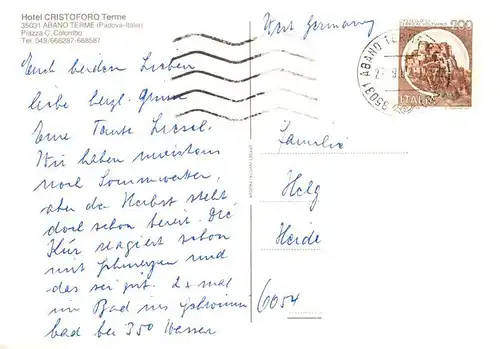 Hotel CRISTOFORO Terme
35031 ABANO TERME (Padova-Italia)
Piazza C. Colombo
Tel. 049/668287-668587
West Germany
200
ITALIA
35031 ABANO TERME
Euch beiden Lieben
liebe herzl. Grüsse
Eure Tante Liesel.
Wir haben meistens
noch Sommerwetter,
aber der Herbst steht
doch schon bereit. Die
Kur reagiert schon
mit Schmerzen und
das sei gut. 2x mal
im Bad ins Schwimm
bad bei 350 Wasser
Familie
Helg
Heide
6054